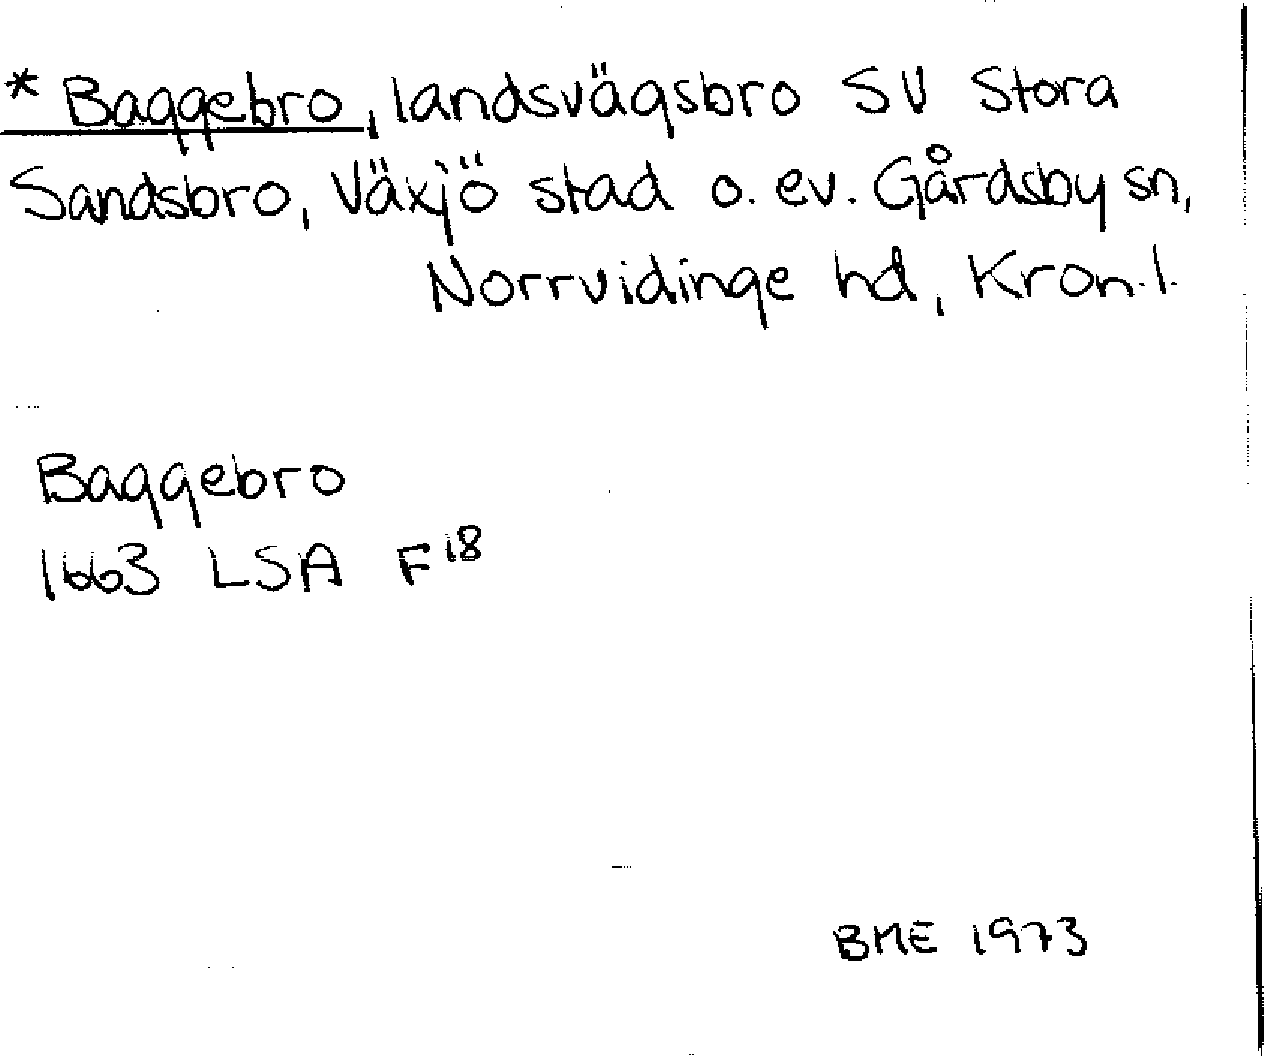 * Baggebro, landsvägsbro SV Stora
Sandsbro, Växjö stad o. ev. Gårdsby sn,
Norrvidinge hd, Kron. l.
Baggebro
1663 LSA F18
BME 1973